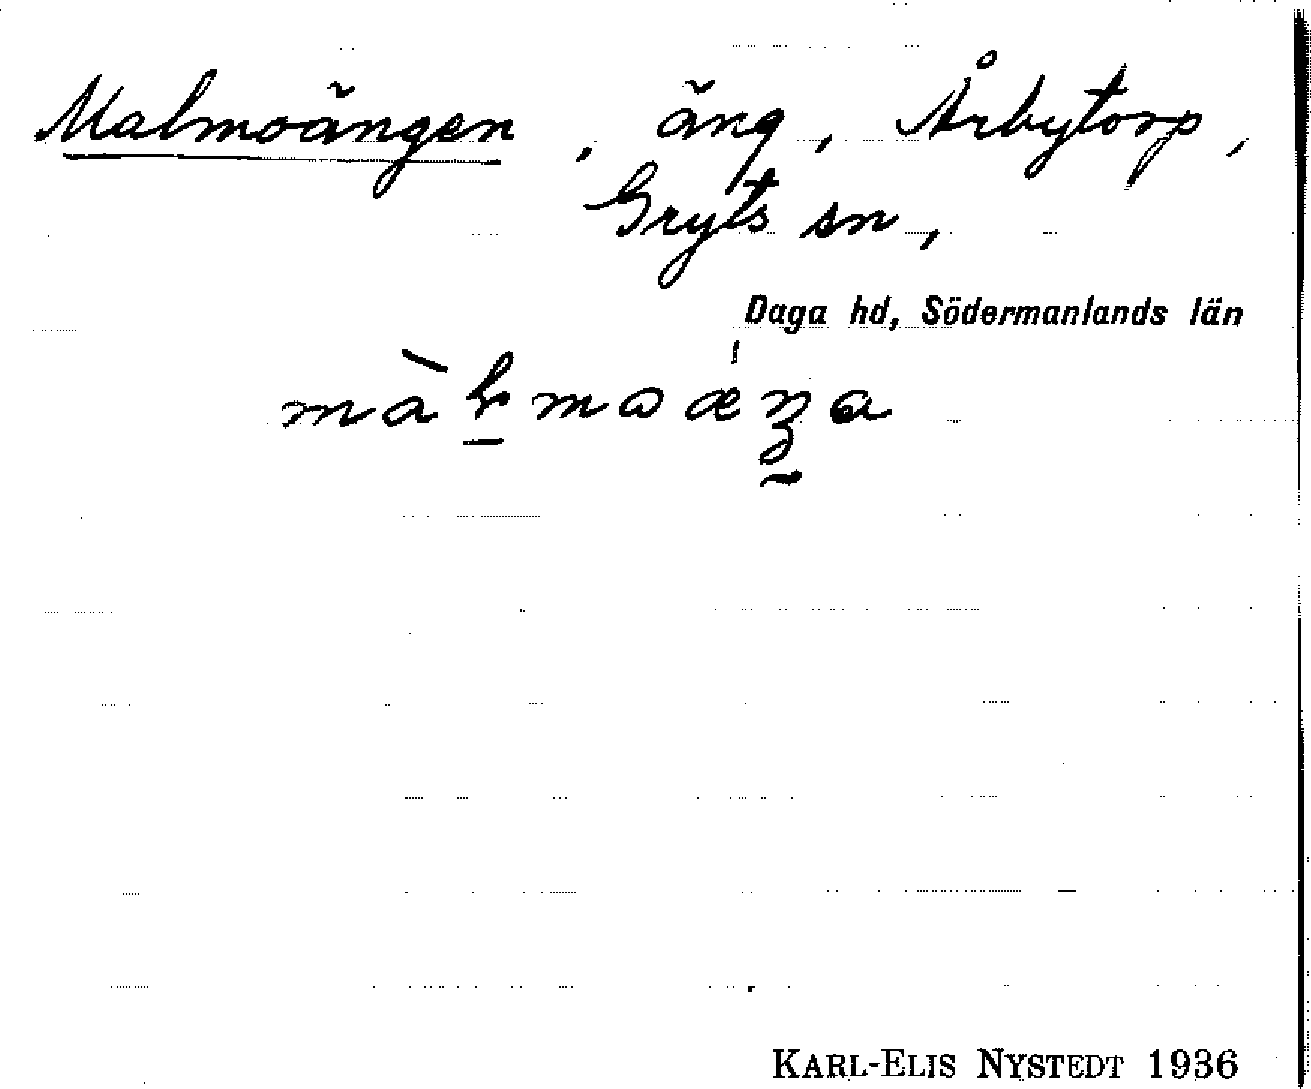 Malmoängen, äng, Årbytorp,
Gryts sn,
Daga hd, Södermanlands län
KARL-ELIS NYSTEDT 1936